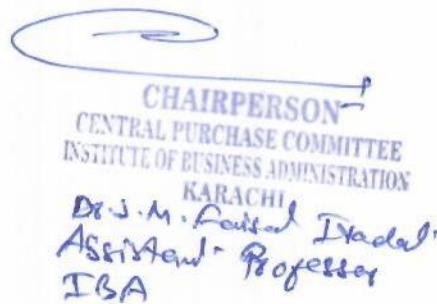 CHAIRPERSON
CENTRAL PURCHASE COMMITTEE
INSTITUTE OF BUSINESS ADMINISTRATION
KARACHI
Dr. S. M. Faisal
Assistant Professor
IBA